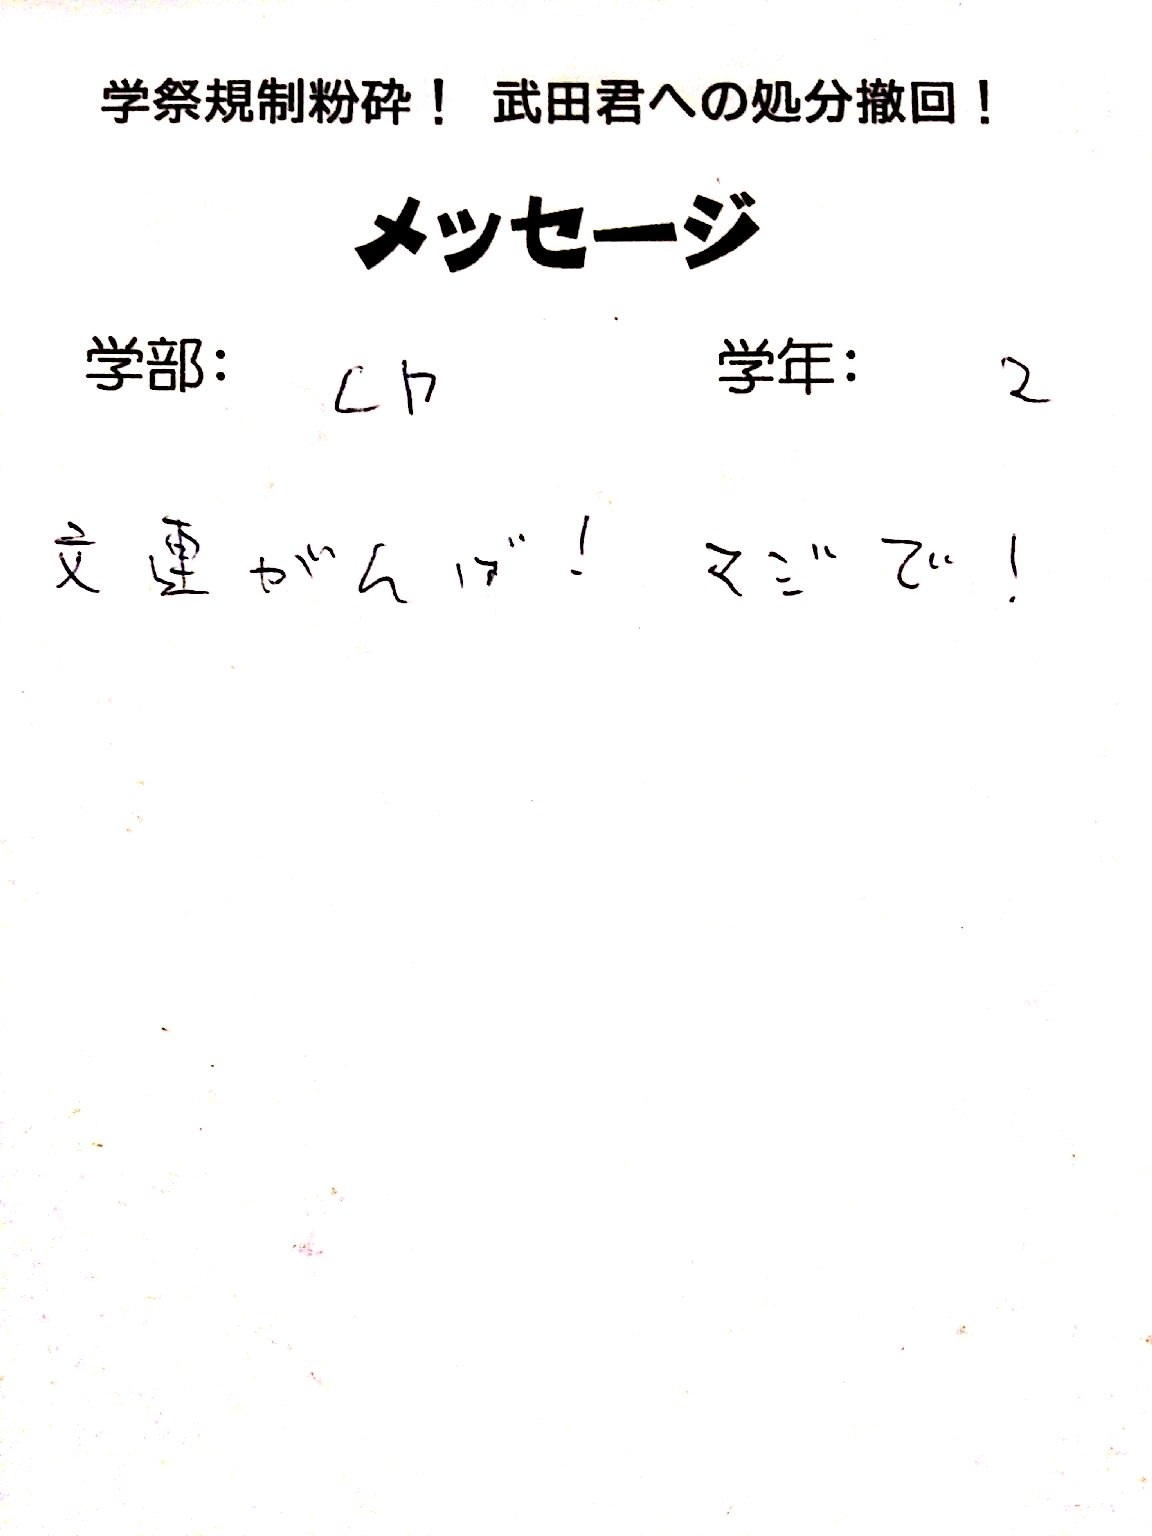 学祭規制粉砕！ 武田君への処分撤回！
メッセージ
学部： 学年： 2
文連がんば！ マジで！